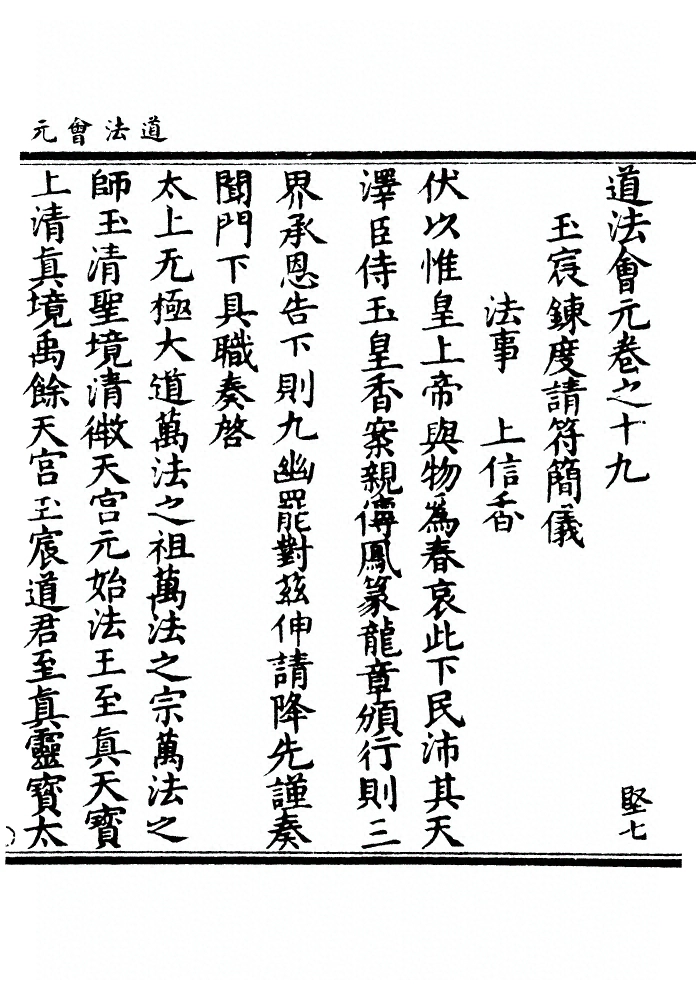 道法會元
道法會元卷之十九
堅七
玉宸鍊度請符簡儀
法事　上信香
伏以惟皇上帝與物爲春哀此下民沛其天
澤臣侍玉皇香案親傳鳳篆龍章頒行則三
界承恩告下則九幽罷對兹伸請降先謹奏
聞門下具職奏啓
太上无極大道萬法之祖萬法之宗萬法之
師玉清聖境清微天宮元始法王至眞天寶
上清眞境禹餘天宮玉宸道君至眞靈寶太